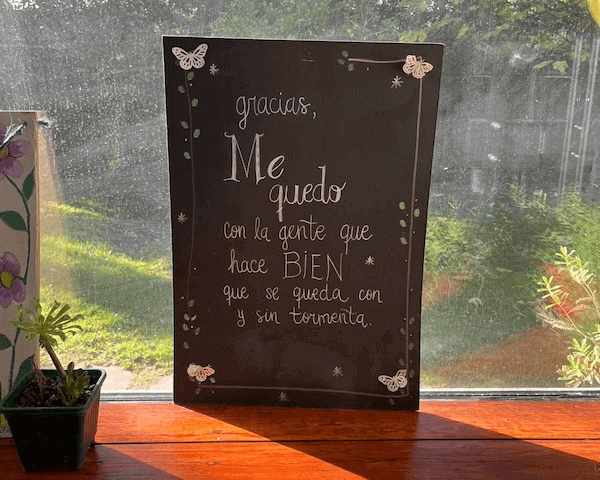 gracias,
Me
quedo
con la gente que
hace BIEN
que se queda con
y sin tormenta.